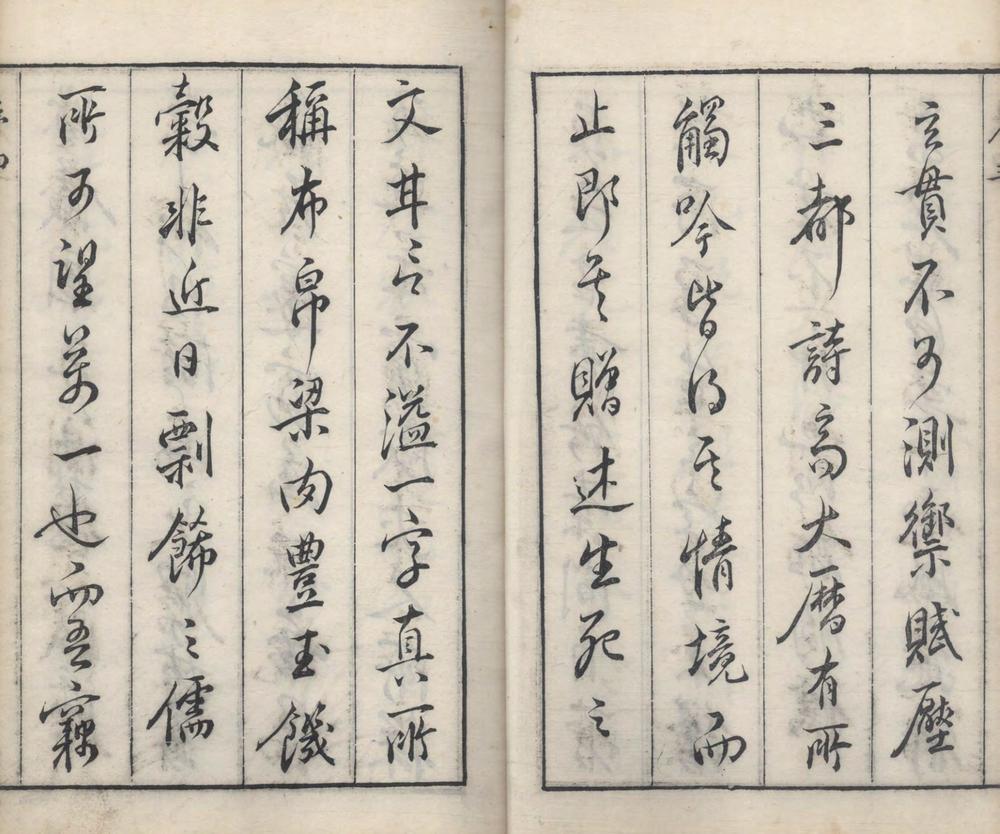 玄貫不可測禦賦壓
三都詩高大曆有所
觸吟皆得其情境而
止即其贈述生死之
文其言不溢一字真所
稱布帛粱肉豐玉饑
穀非近日剽飾之儒
所可望萬一也而吾竊